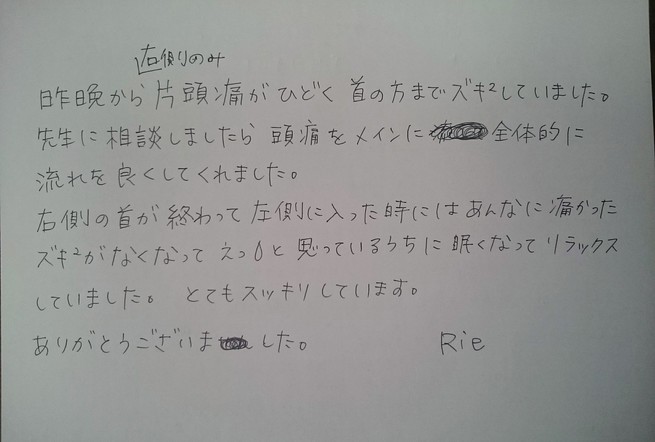 右側のみ
昨晩から片頭痛がひどく 首の方までズキ²していました。
先生に相談しましたら 頭痛をメインに 全体的に
流れを良くしてくれました。
右側の首が終わって左側に入った時にはあんなに痛かった
ズキ²がなくなって えっ と思っているうちに眠くなってリラックス
していました。 とてもスッキリしています。
ありがとうございました。 Rie